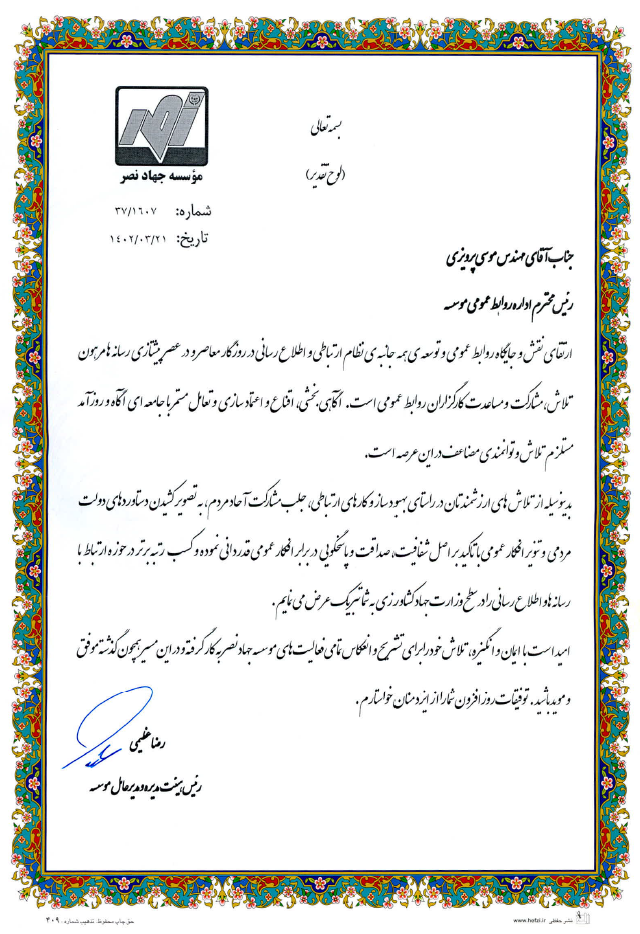 بسمه تعالی
(لوح تقدیر)
نصر
مؤسسه جهاد نصر
شماره: ۳۷/۱۶۰۷
تاریخ: ۱۴۰۲/۰۳/۲۱
جناب آقای مهندس موسی پرویزی
رئیس محترم اداره روابط عمومی موسسه
ارتقای نقش و جایگاه روابط عمومی و توسعه ی همه جانبه ی نظام ارتباطی و اطلاع رسانی در روزگار معاصر و در عصر پیشتازی رسانه ها مرهون
تلاش، مشارکت و مساعدت کارگزاران روابط عمومی است. آگاهی بخشی، اقناع و اعتماد سازی و تعامل مستمر با جامعه ای آگاه و روزآمد
مستلزم تلاش و توانمندی مضاعف در این عرصه است.
بدینوسیله از تلاش های ارزشمندتان در راستای بهبود ساز و کارهای ارتباطی، جلب مشارکت آحاد مردم، به تصویر کشیدن دستاوردهای دولت
مردمی و تنویر افکار عمومی با تاکید بر اصل شفافیت، صداقت و پاسخگویی در برابر افکار عمومی قدردانی نموده و کسب رتبه برتر در حوزه ارتباط با
رسانه ها و اطلاع رسانی را در سطح وزارت جهاد کشاورزی به شما تبریک عرض می نمایم.
امید است با ایمان و انگیزه، تلاش خود را برای تشریح و انعکاس تمامی فعالیت های موسسه جهاد نصر به کار گرفته و در این مسیر همچون گذشته موفق
و موید باشید. توفیقات روز افزون شما را از ایزد منان خواستارم.
رضا عظیمی
رئیس هیئت مدیره و مدیرعامل موسسه
حق چاپ محفوظ. تذهیب شماره: ۴۰۹
نشر حفظی www.hefzi.ir